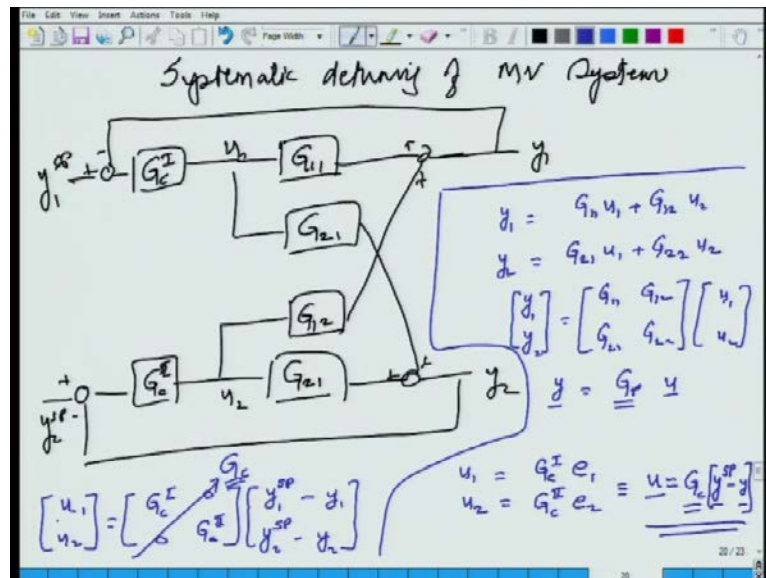 File Edit View Insert Actions Tools Help
Page Width
B I
Systematic detuning of MV System
y₁^SP + - G_c^I u₁ G₁₁ + + y₁
G₂₁
G₁₂
y₂^SP + - G_c^II u₂ G₂₁ + + y₂
y₁ = G₁₁ u₁ + G₁₂ u₂
y₂ = G₂₁ u₁ + G₂₂ u₂
[y₁ y₂] = [G₁₁ G₁₂ G₂₁ G₂₂] [u₁ u₂]
y = G_p u
u₁ = G_c^I e₁
u₂ = G_c^II e₂ ≡ u = G_c [y^SP - y]
G_c
[u₁ u₂] = [G_c^I 0 0 G_c^II] [y₁^SP - y₁ y₂^SP - y₂]
20 / 23
20